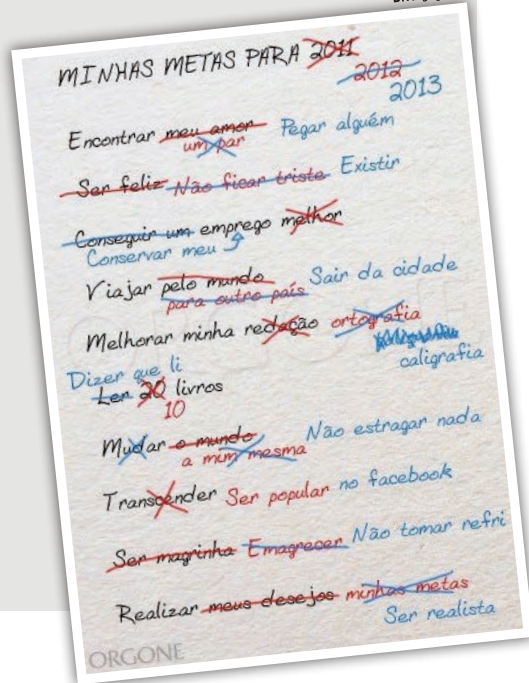 MINHAS METAS PARA 2011
2012
2013
Encontrar meu amor Pegar alguém
um par
Ser feliz Não ficar triste Existir
Conseguir um emprego melhor
Conservar meu
Viajar pelo mundo Sair da cidade
para outro país
Melhorar minha redação ortografia
caligrafia
Dizer que li
Ler 20 livros
10
Mudar o mundo Não estragar nada
a mim mesma
Transcender Ser popular no facebook
Ser magrinha Emagrecer Não tomar refri
Realizar meus desejos minhas metas
Ser realista
ORGONE